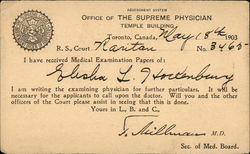 ASSESSMENT SYSTEM
OFFICE OF THE SUPREME PHYSICIAN
TEMPLE BUILDING
Toronto, Canada, May 18th 1903
R. S., Court Raritan No. 3465
I have received Medical Examination Papers of:
Elisha L. Hockenbury
I am writing the examining physician for further particulars. It will be
necessary for the applicants to call upon the doctor. Will you and the other
officers of the Court please assist in seeing that this is done.
Yours in L., B. and C.,
T. Millman M.D.
Sec. of Med. Board.